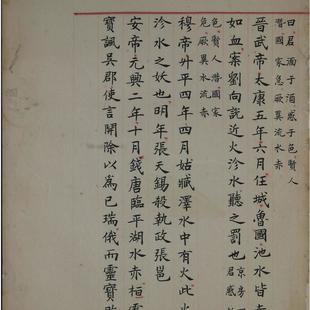 曰君湎于酒惑于色賢人
潛國家危厥異流水赤
晉武帝太康五年六月任城魯國池水皆赤
如血案劉向說近火沴水聽之罰也京房
君惑於
色賢人潛國家
危厥異水流赤
穆帝升平四年四月姑臧澤水中有火此火
沴水之妖也明年張天錫殺執政張邕
安帝元興二年十月錢唐臨平湖水赤桓
寶諷吳郡使言開除以為己瑞俄而靈寶敗